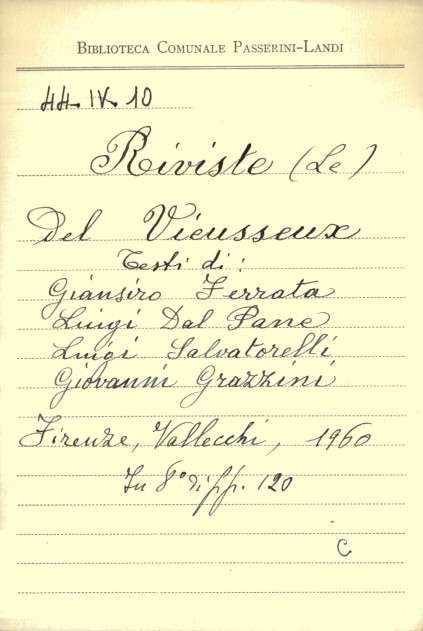 BIBLIOTECA COMUNALE PASSERINI-LANDI
44. IX. 10
Riviste (Le)
Del Vieusseux
Testi di:
Giansiro Ferrata
Luigi Dal Pane
Luigi Salvatorelli
Giovanni Grazzini
Firenze, Vallecchi, 1960
In 8° di pp. 120
C